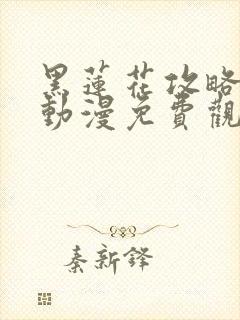 黑蓮花攻略
動漫免費觀
秦新鋒